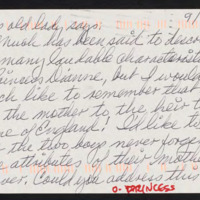 91
s old lady, says:
much has been said to descr
many laudable characteristi
Princess Dianne, but I would
ch like to remember that
the mother to, the heir t
ne of England! I'd like t
the two boys never forge
e attributes of their moth
ver. Could you address this
O- PRINCESS